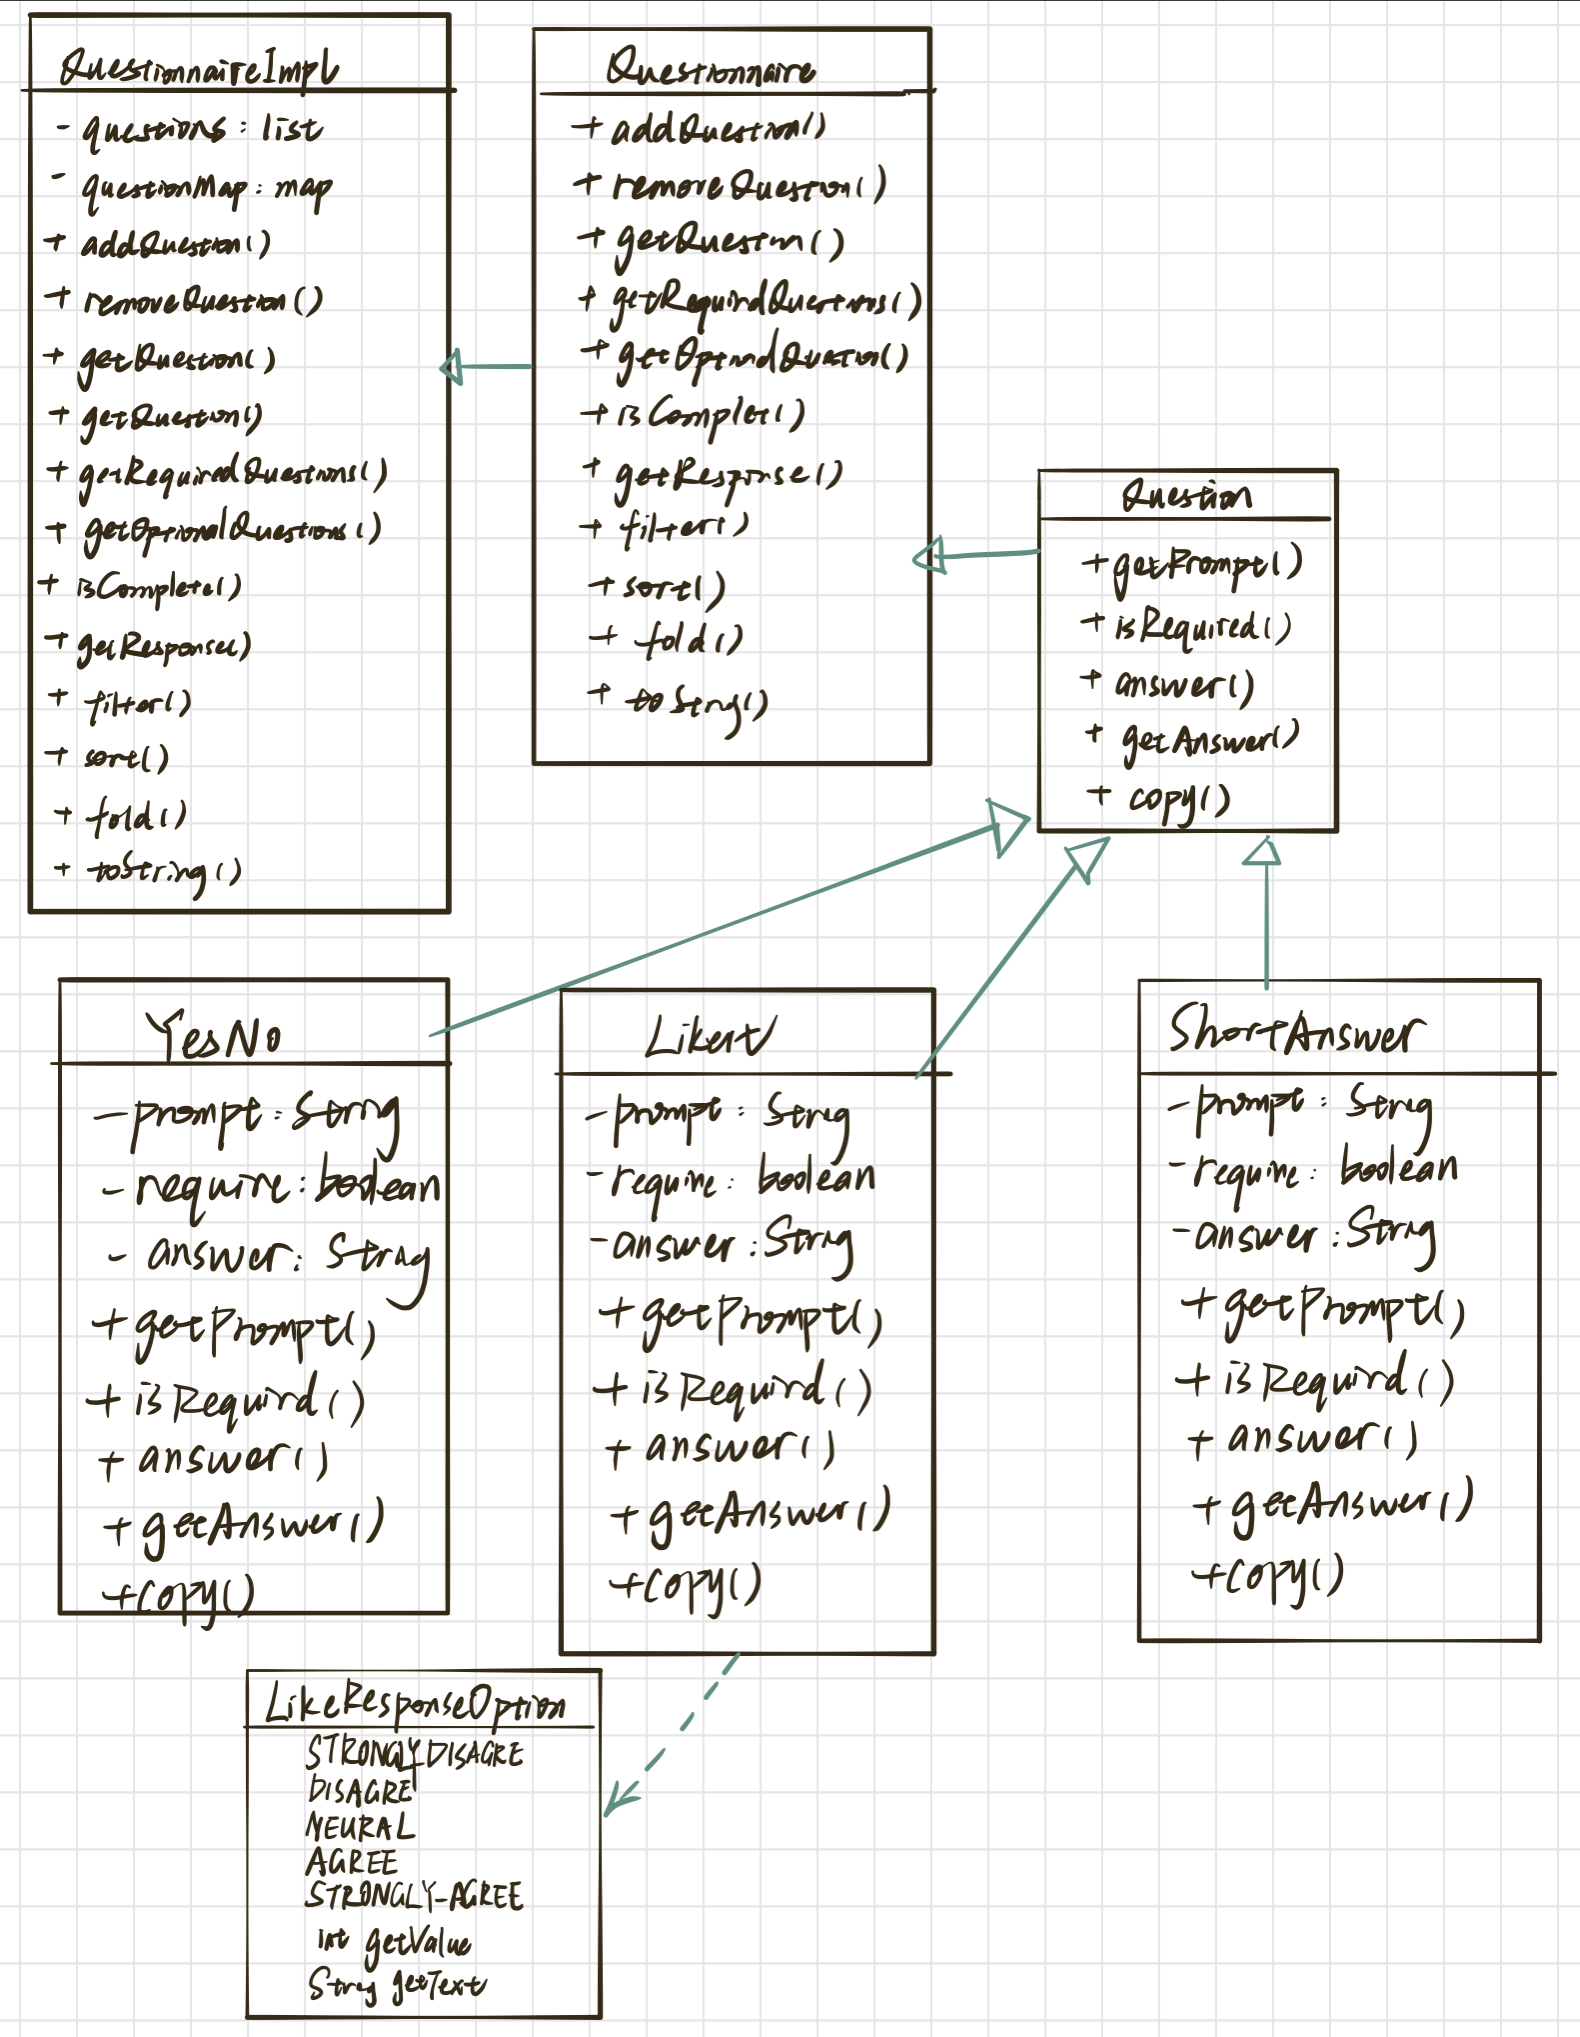 QuestionnaireImpl
- questions : list
- questionMap : map
+ addQuestion()
+ removeQuestion()
+ getQuestion()
+ getQuestion()
+ getRequiredQuestions()
+ getOptionalQuestions()
+ isComplete()
+ getResponse()
+ filter()
+ sort()
+ fold()
+ toString()
Questionnaire
+ addQuestion()
+ removeQuestion()
+ getQuestion()
+ getRequirdQuestions()
+ getOptionalQuestion()
+ isComplet()
+ getResponse()
+ filter()
+ sort()
+ fold()
+ toString()
Question
+ getPrompt()
+ isRequired()
+ answer()
+ getAnswer()
+ copy()
YesNo
- prompt : String
- require : boolean
- answer : String
+ getPrompt()
+ isRequird()
+ answer()
+ getAnswer()
+ copy()
Likert
- prompt : String
- require : boolean
- answer : String
+ getPrompt()
+ isRequird()
+ answer()
+ getAnswer()
+ copy()
ShortAnswer
- prompt : String
- require : boolean
- answer : String
+ getPrompt()
+ isRequird()
+ answer()
+ getAnswer()
+ copy()
LikeResponseOption
STRONGLYDISAGRE
DISAGRE
NEURAL
AGREE
STRONGLY-AGREE
int getValue
String getText